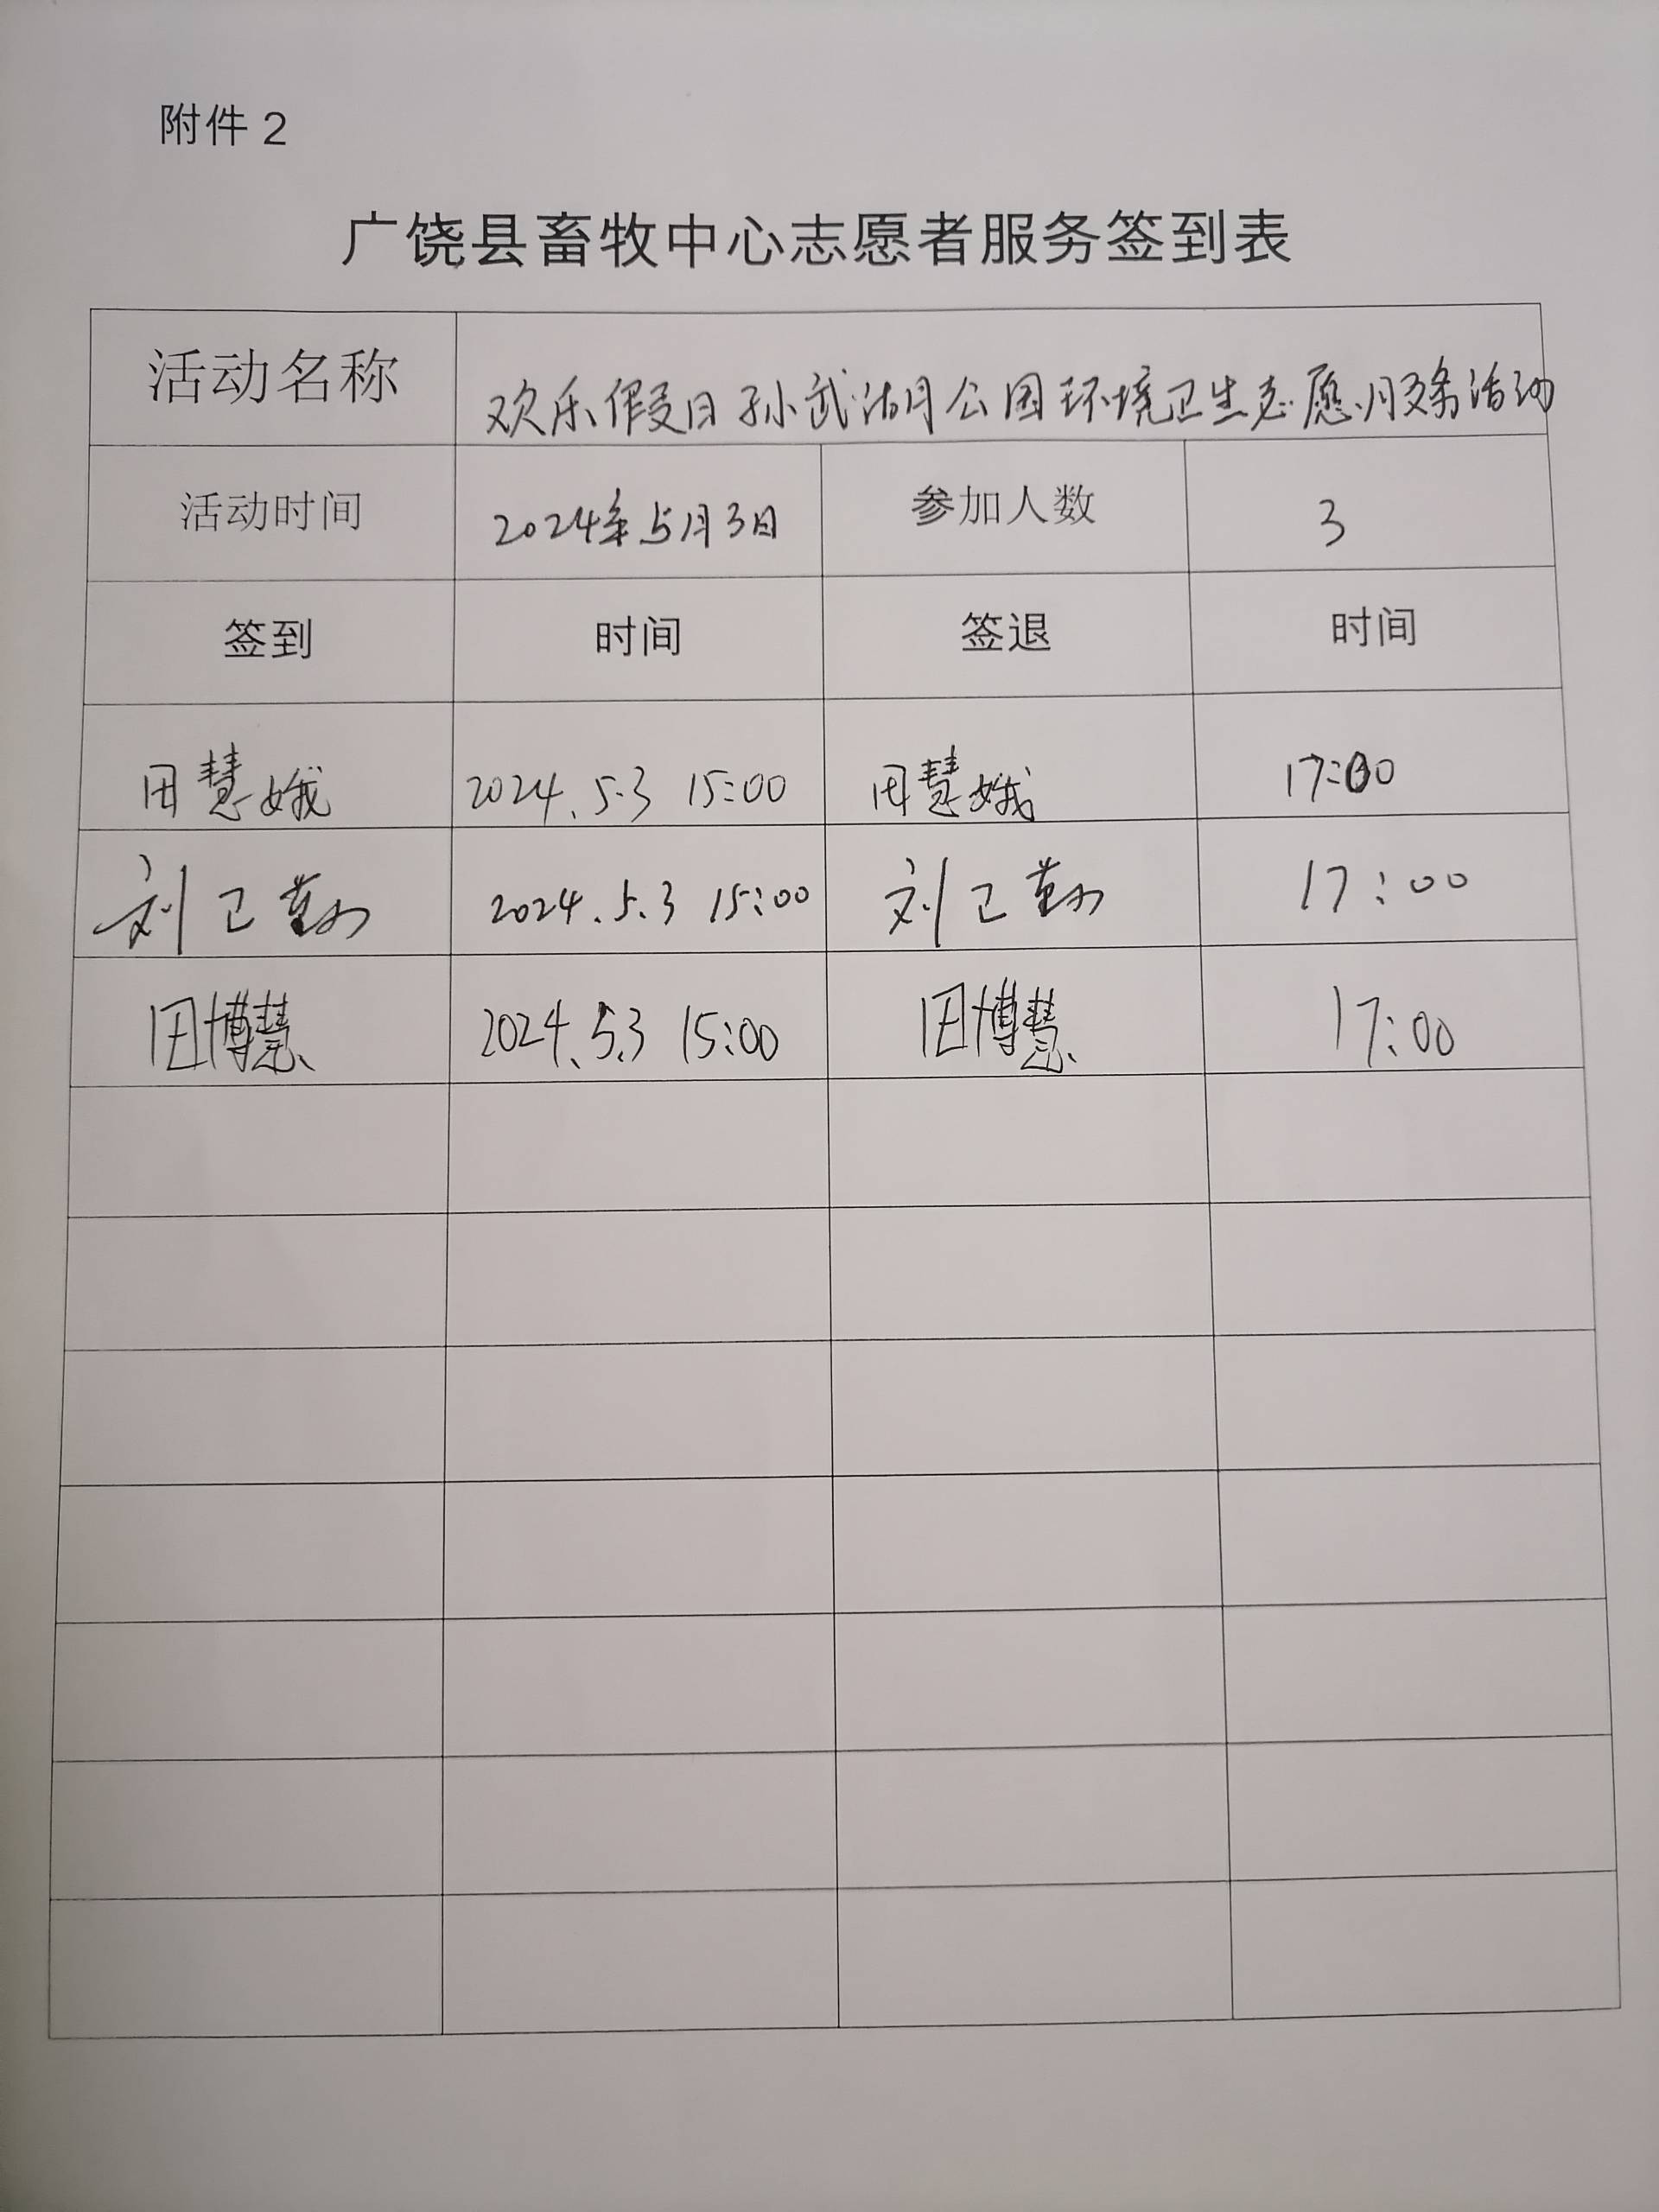 附件2
广饶县畜牧中心志愿者服务签到表
活动名称 欢乐假日孙武湖公园环境卫生志愿服务活动
活动时间 2024年5月3日 参加人数 3
签到 时间 签退 时间
田慧娥 2024.5.3 15:00 田慧娥 17:00
刘卫勤 2024.5.3 15:00 刘卫勤 17:00
田博慧 2024.5.3 15:00 田博慧 17:00